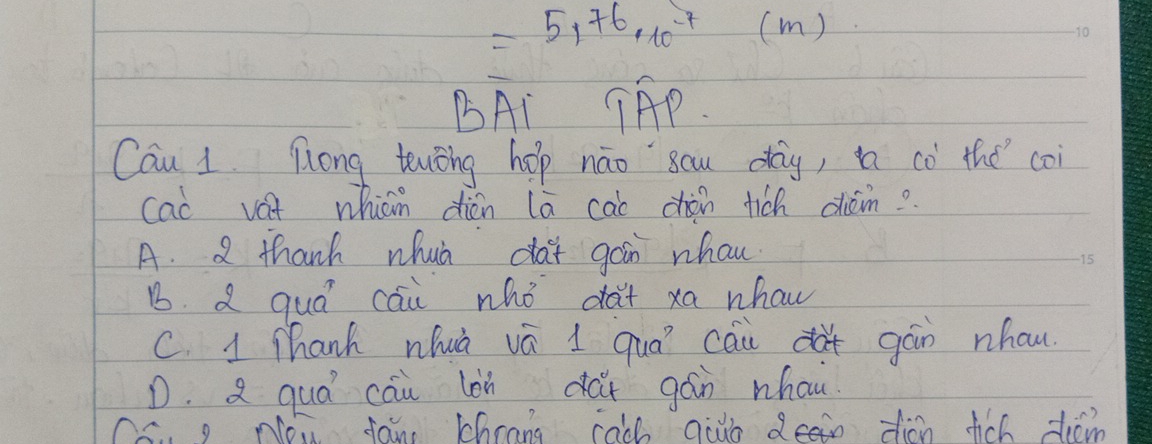 = 5,76.10⁻⁷ (m).
BÀI TẬP.
Câu 1. Trong trường hợp nào sau đây, ta có thể coi
các vật nhiễm điện là các điện tích điểm?
A. 2 thanh nhựa đặt gần nhau.
B. 2 quả cầu nhỏ đặt xa nhau
C. 1 thanh nhựa và 1 quả cầu đặt gần nhau.
D. 2 quả cầu lớn đặt gần nhau.
Câu 2 Nếu tăng khoảng cách giữa 2 điện tích điểm
10
15